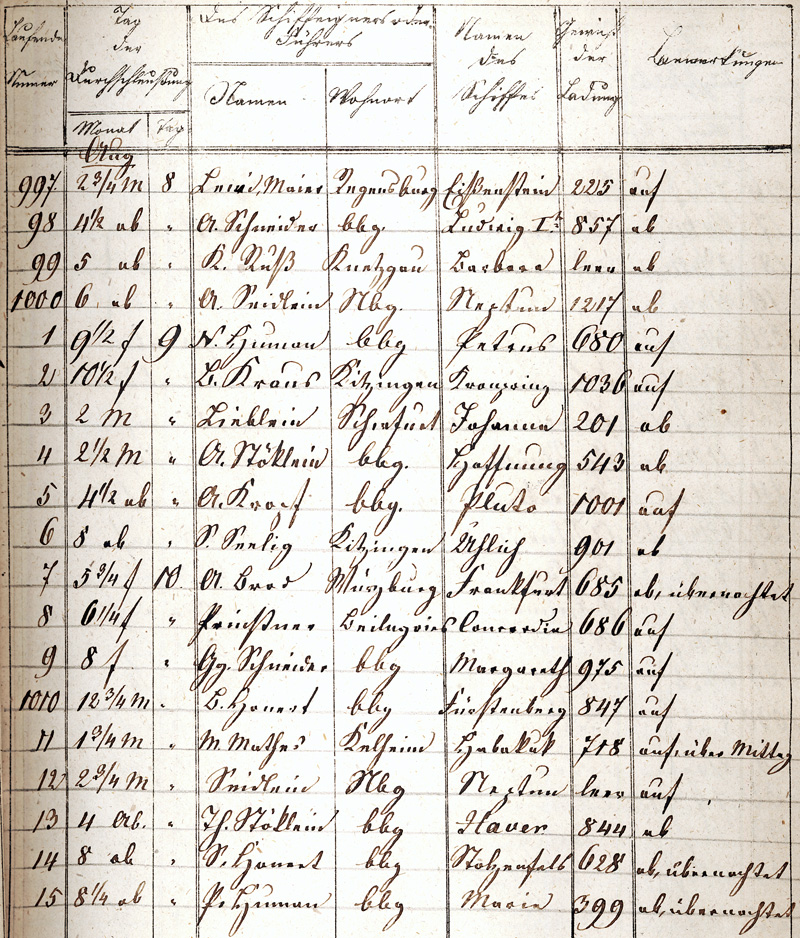 Laufende Numer
Tag der Durchschleußung
Des Schiffseigners oder Führers
Namen des Schiffes
Gewicht der Ladung
Bemerkungen
Namen
Wohnort
Monat
Tag
Aug
997 2 3/4 M 8 Maier Regensburg Eißenstein 225 auf
98 4 1/2 ab " A. Schneider bbg. Ludwig Ir 857 ab
99 5 ab " K. Ruß Knetzgau Barbara leer ab
1000 6 ab " A. Seidlein Nbg. Neptun 1217 ab
1 9 1/2 f 9 N. Human bbg Petrus 680 auf
2 10 1/2 f " B. Kraus Kitzingen Kronprinz 1036 auf
3 2 M " Lieblein Schwfurt Johanna 201 ab
4 2 1/2 M " A. Stöklein bbg. Hoffnung 543 ab
5 4 1/2 ab " A. bbg. Pluto 1001 auf
6 8 ab " S. Seelig Kitzingen Uhlich 901 ab
7 5 3/4 f 10 A. Brod Würzburg Frankfurt 685 ab, übernachtet
8 6 1/4 f " Beilngries Concordia 686 auf
9 8 f " Gg. Schneider bbg Margareth 975 auf
1010 12 3/4 M " B. Honert bbg Fürstenberg 847 auf
11 1 3/4 M " M Mathes Kelheim Habakuk 718 auf, über Mittag
12 2 3/4 M " Seidlein Nbg Neptun leer auf
13 4 Ab. " Th. Stöklein bbg Xaver 844 ab
14 8 ab " S. Honert bbg Stolzenfels 628 ab, übernachtet
15 8 1/4 ab " P. Human bbg Marie 399 ab, übernachtet